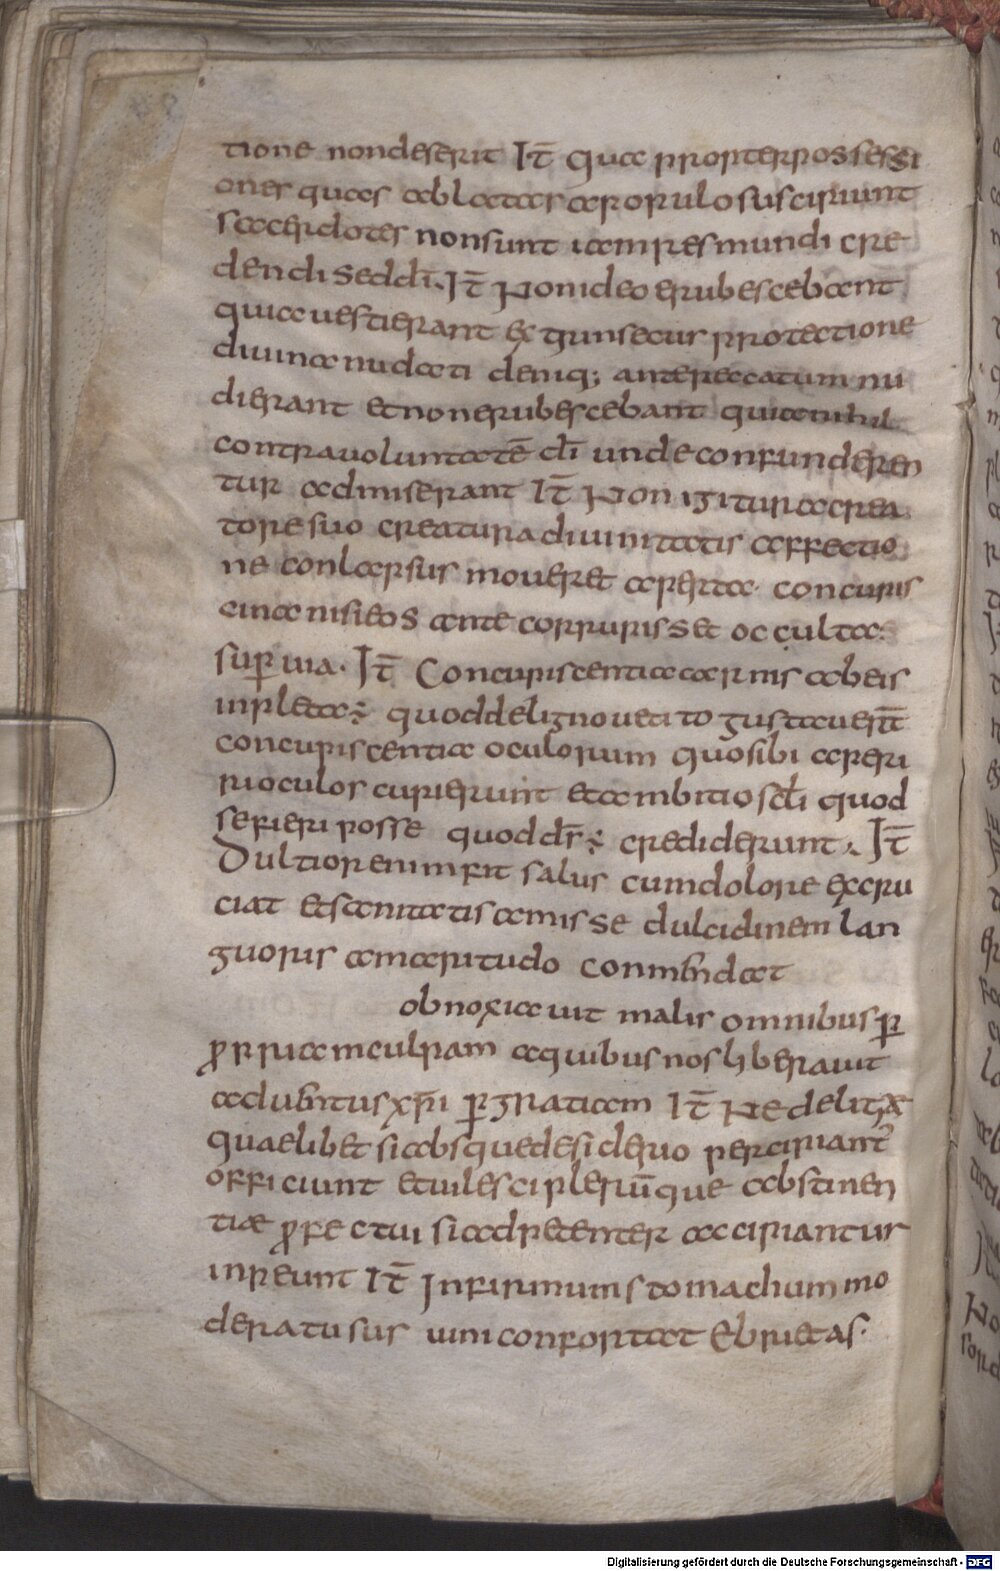 tione non deserit It̄ Quia propter possessi
ones quas oblatas a populo suscipiunt
sacerdotes non sunt iam res mundi cre
dendi sed dī. It̄ Non ideo erubescebant
quia uestierant extrinsecus protectione
diuina nudati deniq; ante peccatum nu
di erant et non erubescebant quia nihil
contra uoluntatē dī unde confunderen
tur admiserant It̄ Non igitur a crea
tore suo creatura diuinitatis affectio
ne conlapsus moueret aperta concupis
cina nisi eos ante corrupisset occulta
suꝑuia. It̄ Concupiscentia carnis ab eis
inpleta: quod de ligno uetito gustauerūt
concupiscentia oculorum quo sibi aperi
ri oculos cupierunt et ambitio scl̄i quod
se fieri posse quod dr̄: crediderunt. It̄
Dultior enim fit salus cum dolore excru
ciat et sanitatis amisse dulcidinem lan
guoris amaritudo conmendat
obnoxia uit malis omnibus ꝑ
ꝓpriam culpam a quibus nos liberauit
aduentus xp̄i ꝑ gratiam It̄ Ne delitiæ
quaelibet si absque desiderio percipiant̄
officiunt et uiles cipleriūque abstinen
tiæ ꝓfectui si adpetenter accipiantur
inpeunt It̄ Infirmum stomachum mo
deratus usus uini confortat Ebrietas.
Digitalisierung gefördert durch die Deutsche Forschungsgemeinschaft - DFG